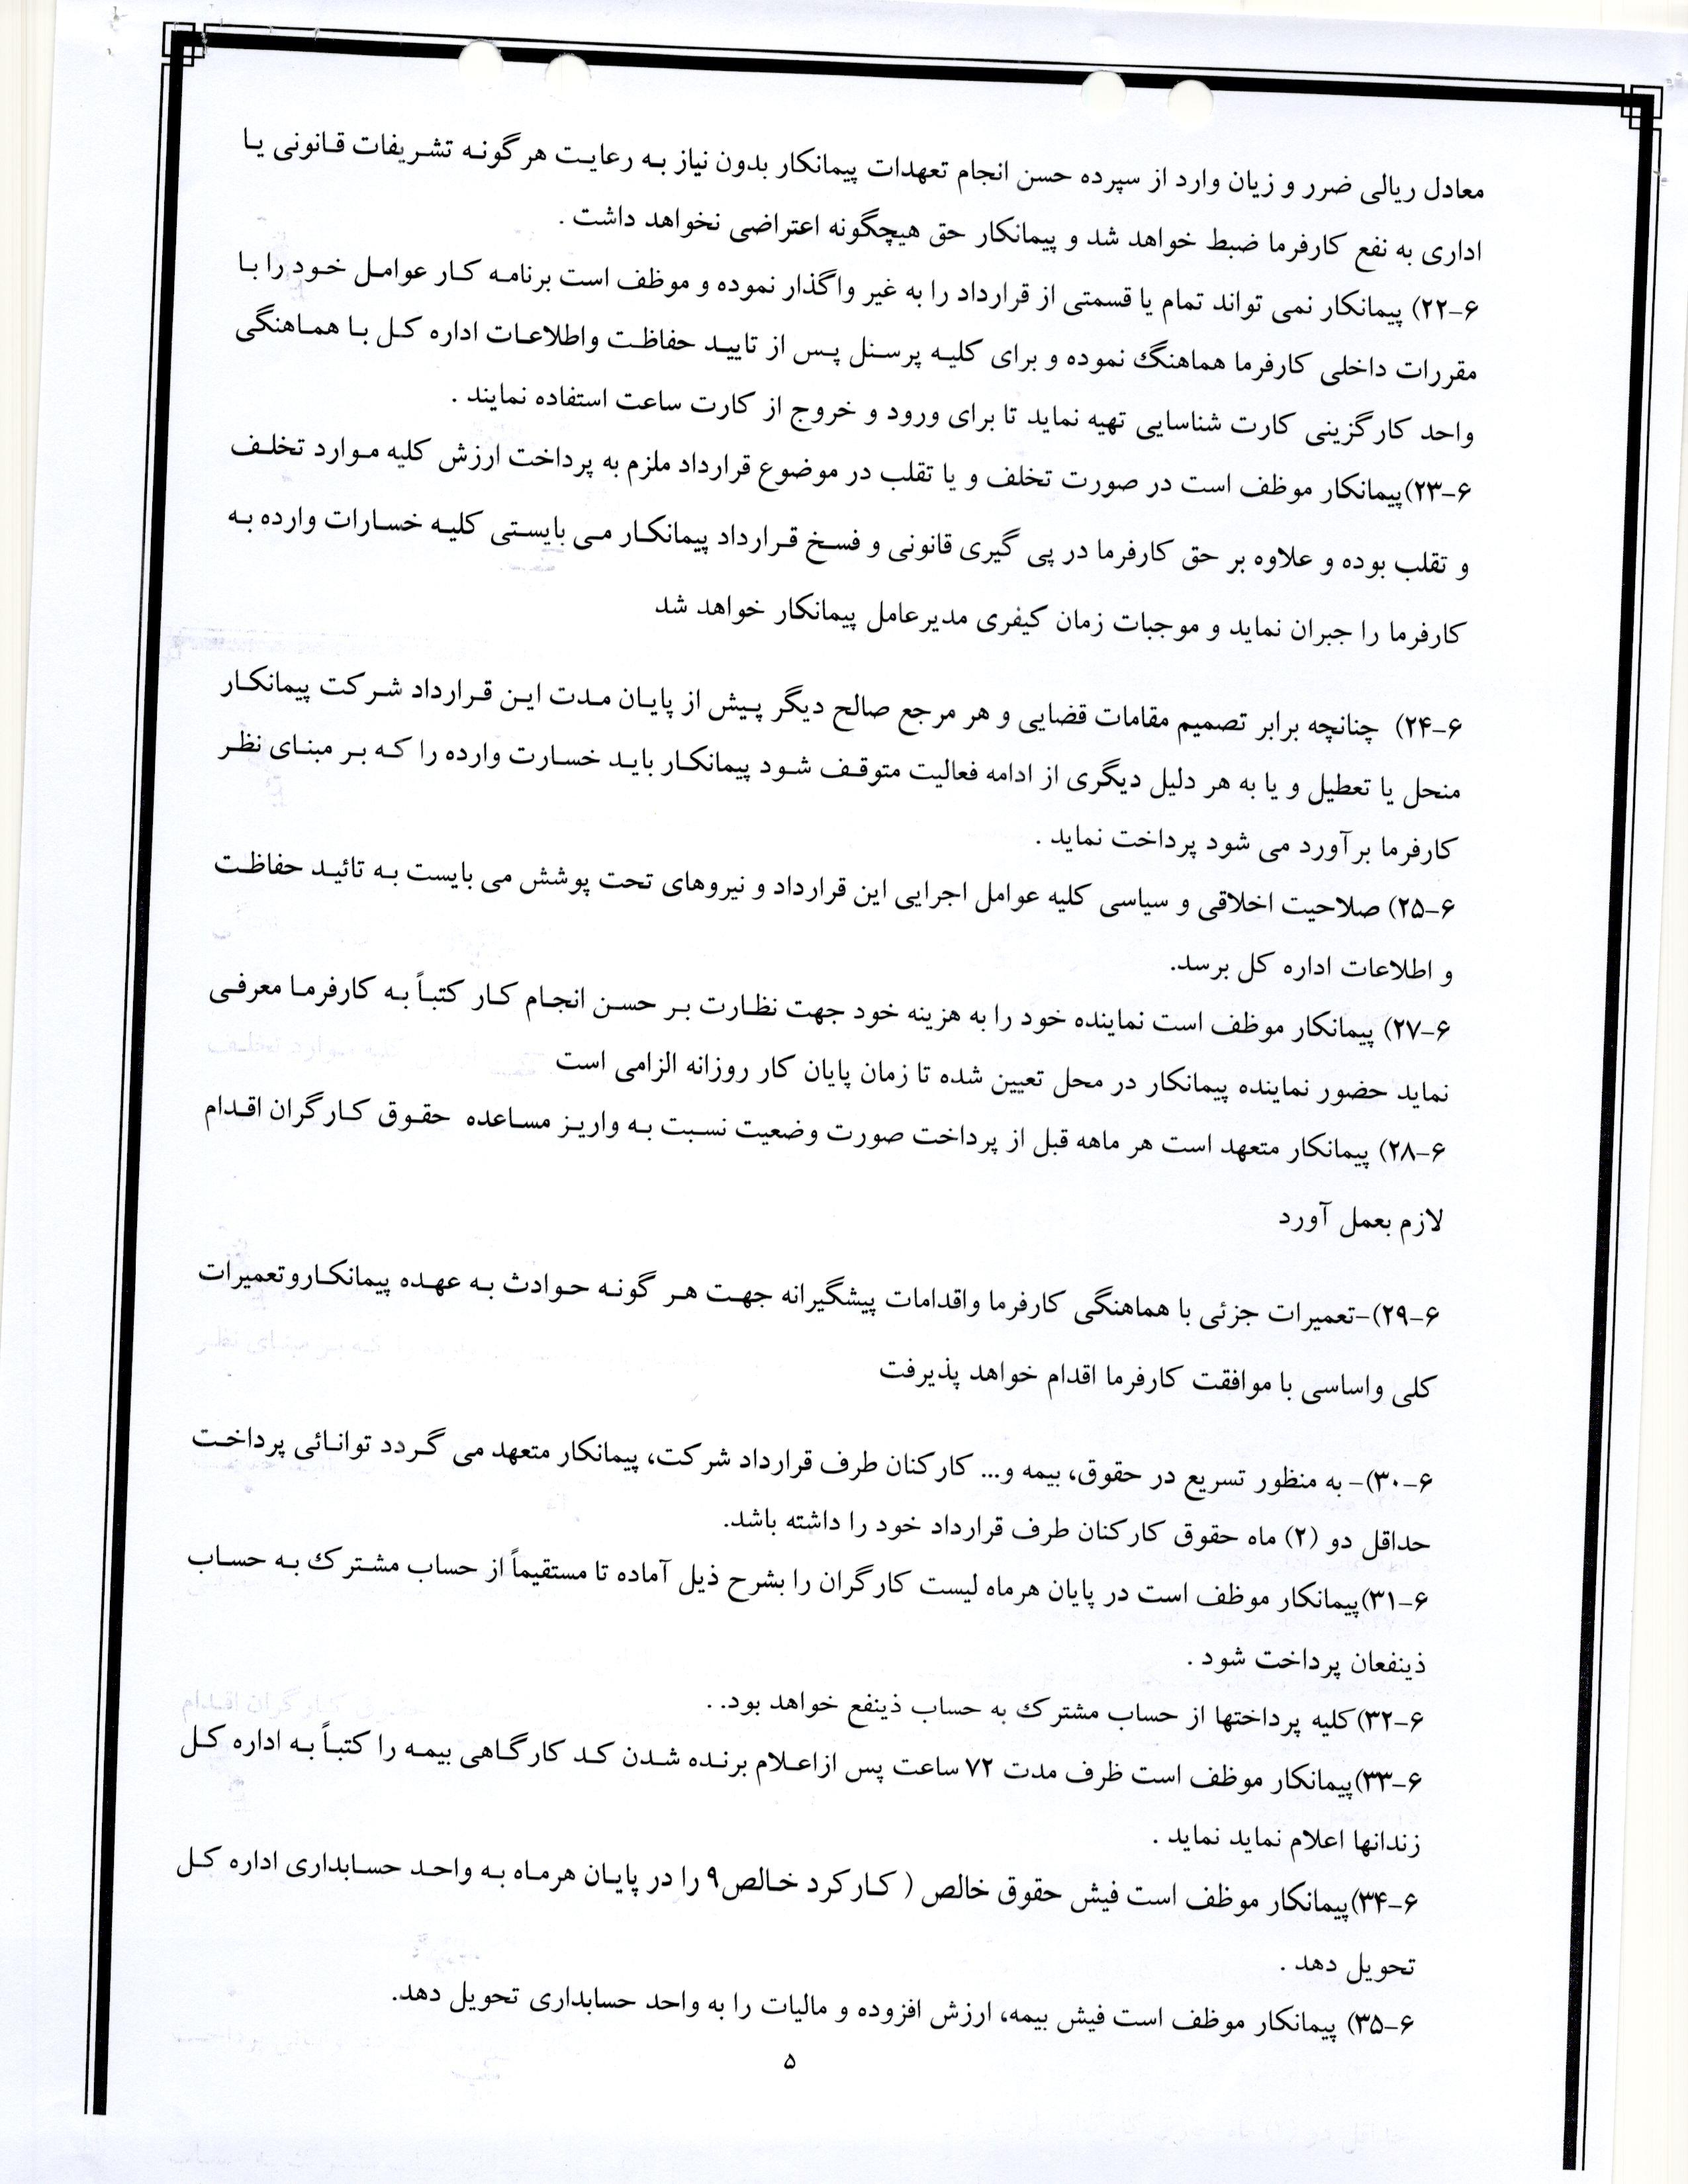 معادل ریالی ضرر و زیان وارد از سپرده حسن انجام تعهدات پیمانکار بدون نیاز به رعایت هر گونه تشریفات قانونی یا
اداری به نفع کارفرما ضبط خواهد شد و پیمانکار حق هیچگونه اعتراضی نخواهد داشت .
۶-۲۲) پیمانکار نمی تواند تمام یا قسمتی از قرارداد را به غیر واگذار نموده و موظف است برنامه کار عوامل خود را با
مقررات داخلی کارفرما هماهنگ نموده و برای کلیه پرسنل پس از تایید حفاظت واطلاعات اداره کل با هماهنگی
واحد کارگزینی کارت شناسایی تهیه نماید تا برای ورود و خروج از کارت ساعت استفاده نمایند .
۶-۲۳)پیمانکار موظف است در صورت تخلف و یا تقلب در موضوع قرارداد ملزم به پرداخت ارزش کلیه موارد تخلف
و تقلب بوده و علاوه بر حق کارفرما در پی گیری قانونی و فسخ قرارداد پیمانکار می بایستی کلیه خسارات وارده به
کارفرما را جبران نماید و موجبات زمان کیفری مدیرعامل پیمانکار خواهد شد
۶-۲۴) چنانچه برابر تصمیم مقامات قضایی و هر مرجع صالح دیگر پیش از پایان مدت این قرارداد شرکت پیمانکار
منحل یا تعطیل و یا به هر دلیل دیگری از ادامه فعالیت متوقف شود پیمانکار باید خسارت وارده را که بر مبنای نظر
کارفرما برآورد می شود پرداخت نماید .
۶-۲۵) صلاحیت اخلاقی و سیاسی کلیه عوامل اجرایی این قرارداد و نیروهای تحت پوشش می بایست به تائید حفاظت
و اطلاعات اداره کل برسد.
۶-۲۷) پیمانکار موظف است نماینده خود را به هزینه خود جهت نظارت بر حسن انجام کار کتباً به کارفرما معرفی
نماید حضور نماینده پیمانکار در محل تعیین شده تا زمان پایان کار روزانه الزامی است
۶-۲۸) پیمانکار متعهد است هر ماهه قبل از پرداخت صورت وضعیت نسبت به واریز مساعده حقوق کارگران اقدام
لازم بعمل آورد
۶-۲۹)-تعمیرات جزئی با هماهنگی کارفرما واقدامات پیشگیرانه جهت هر گونه حوادث به عهده پیمانکاروتعمیرات
کلی واساسی با موافقت کارفرما اقدام خواهد پذیرفت
۶-۳۰)- به منظور تسریع در حقوق، بیمه و... کارکنان طرف قرارداد شرکت، پیمانکار متعهد می گردد توانائی پرداخت
حداقل دو (۲) ماه حقوق کارکنان طرف قرارداد خود را داشته باشد.
۶-۳۱)پیمانکار موظف است در پایان هرماه لیست کارگران را بشرح ذیل آماده تا مستقیماً از حساب مشترک به حساب
ذینفعان پرداخت شود .
۶-۳۲)کلیه پرداختها از حساب مشترک به حساب ذینفع خواهد بود. .
۶-۳۳)پیمانکار موظف است ظرف مدت ۷۲ ساعت پس ازاعلام برنده شدن کد کارگاهی بیمه را کتباً به اداره کل
زندانها اعلام نماید نماید .
۶-۳۴)پیمانکار موظف است فیش حقوق خالص ( کارکرد خالص۹ را در پایان هرماه به واحد حسابداری اداره کل
تحویل دهد .
۶-۳۵) پیمانکار موظف است فیش بیمه، ارزش افزوده و مالیات را به واحد حسابداری تحویل دهد.
۵